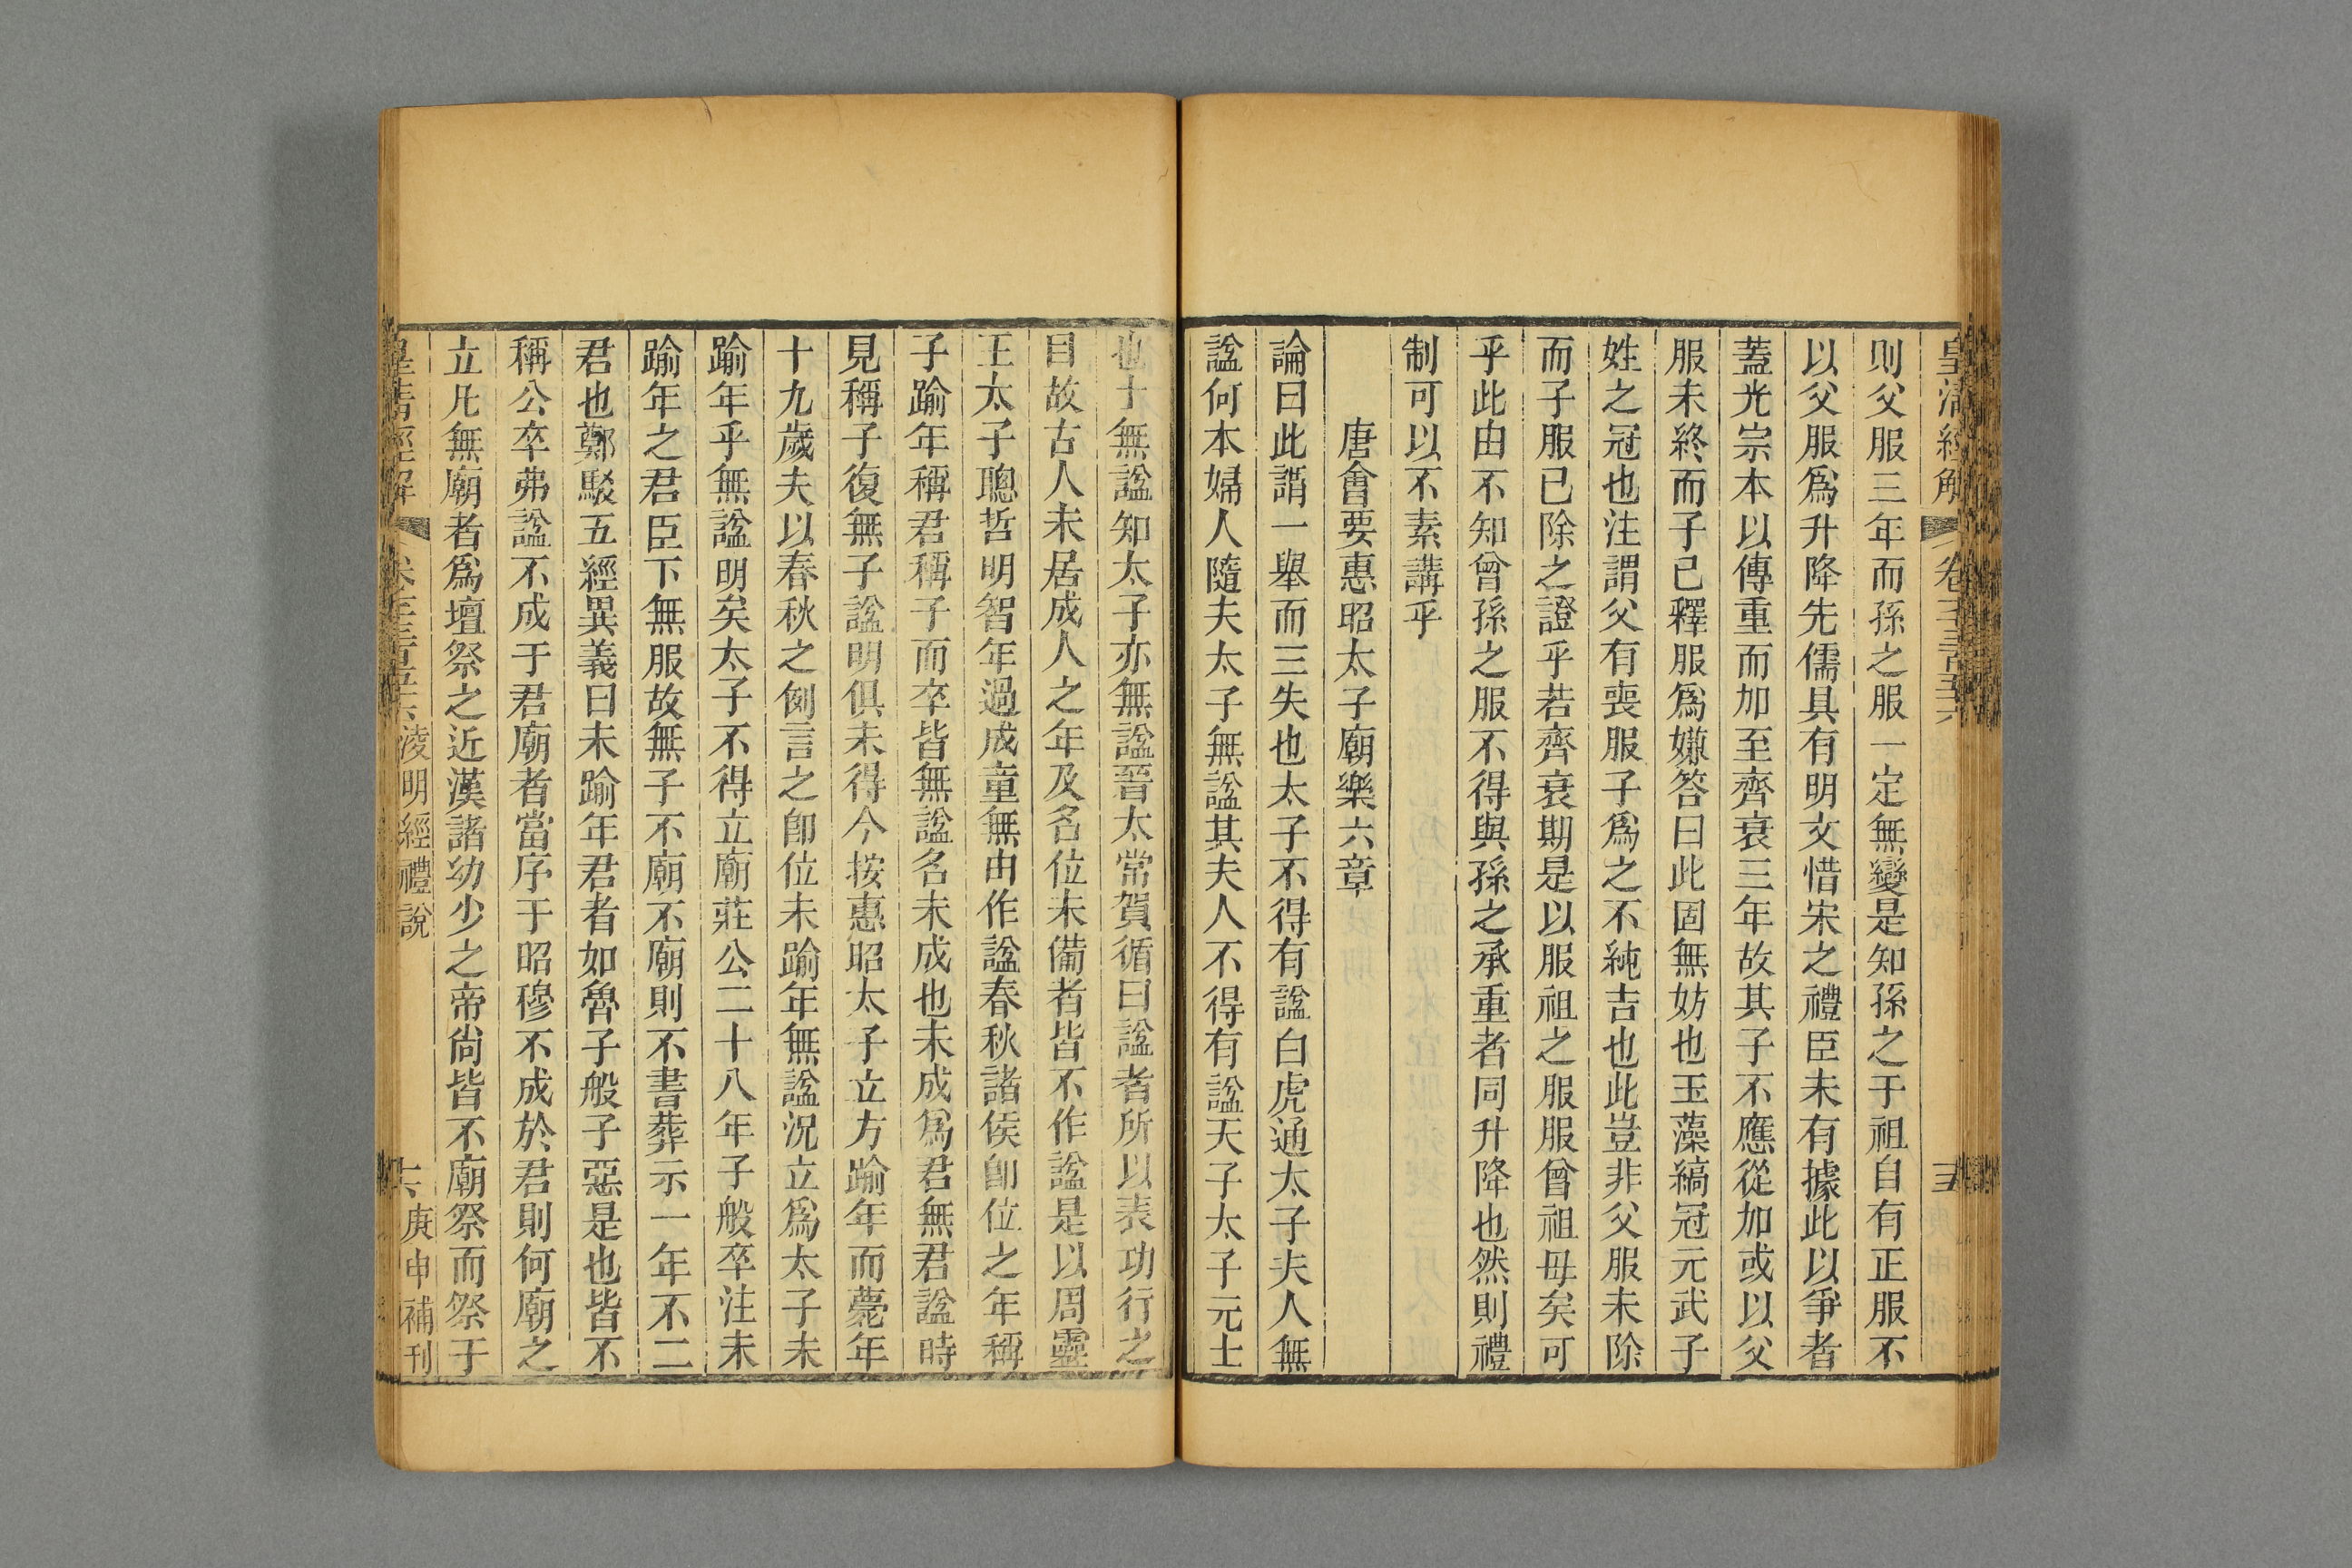 皇清經解 卷
則父服三年而孫之服一定無變是知孫之于祖自有正服不
以父服爲升降先儒具有明文惜宋之禮臣未有據此以爭者
蓋光宗本以傳重而加至齊衰三年故其子不應從加或以父
服未終而子已釋服爲嫌答曰此固無妨也玉藻縞冠元武子
姓之冠也注謂父有喪服子爲之不純吉也此豈非父服未除
而子服已除之證乎若齊衰期是以服祖之服服曾祖母矣可
乎此由不知曾孫之服不得與孫之承重者同升降也然則禮
制可以不素講乎
唐會要惠昭太子廟樂六章
論曰此謂一舉而三失也太子不得有諡白虎通太子夫人無
諡何本婦人隨夫太子無諡其夫人不得有諡天子太子元士
也士無諡知太子亦無諡晉太常賀循曰諡者所以表功行之
目故古人未居成人之年及名位未備者皆不作諡是以周靈
王太子聰哲明智年過成童無由作諡春秋諸侯卽位之年稱
子踰年稱君稱子而卒皆無諡名未成也未成爲君無君諡時
見稱子復無子諡明俱未得今按惠昭太子立方踰年而薨年
十九歲夫以春秋之例言之卽位未踰年無諡況立爲太子未
踰年乎無諡明矣太子不得立廟莊公二十八年子般卒注未
踰年之君臣下無服故無子不廟不廟則不書葬示一年不二
君也鄭駁五經異義曰未踰年君者如魯子般子惡是也皆不
稱公卒弗諡不成于君廟者當序于昭穆不成於君則何廟之
立凡無廟者爲壇祭之近漢諸幼少之帝尙皆不廟祭而祭于
皇清經解 淩明經禮說 庚申補刊